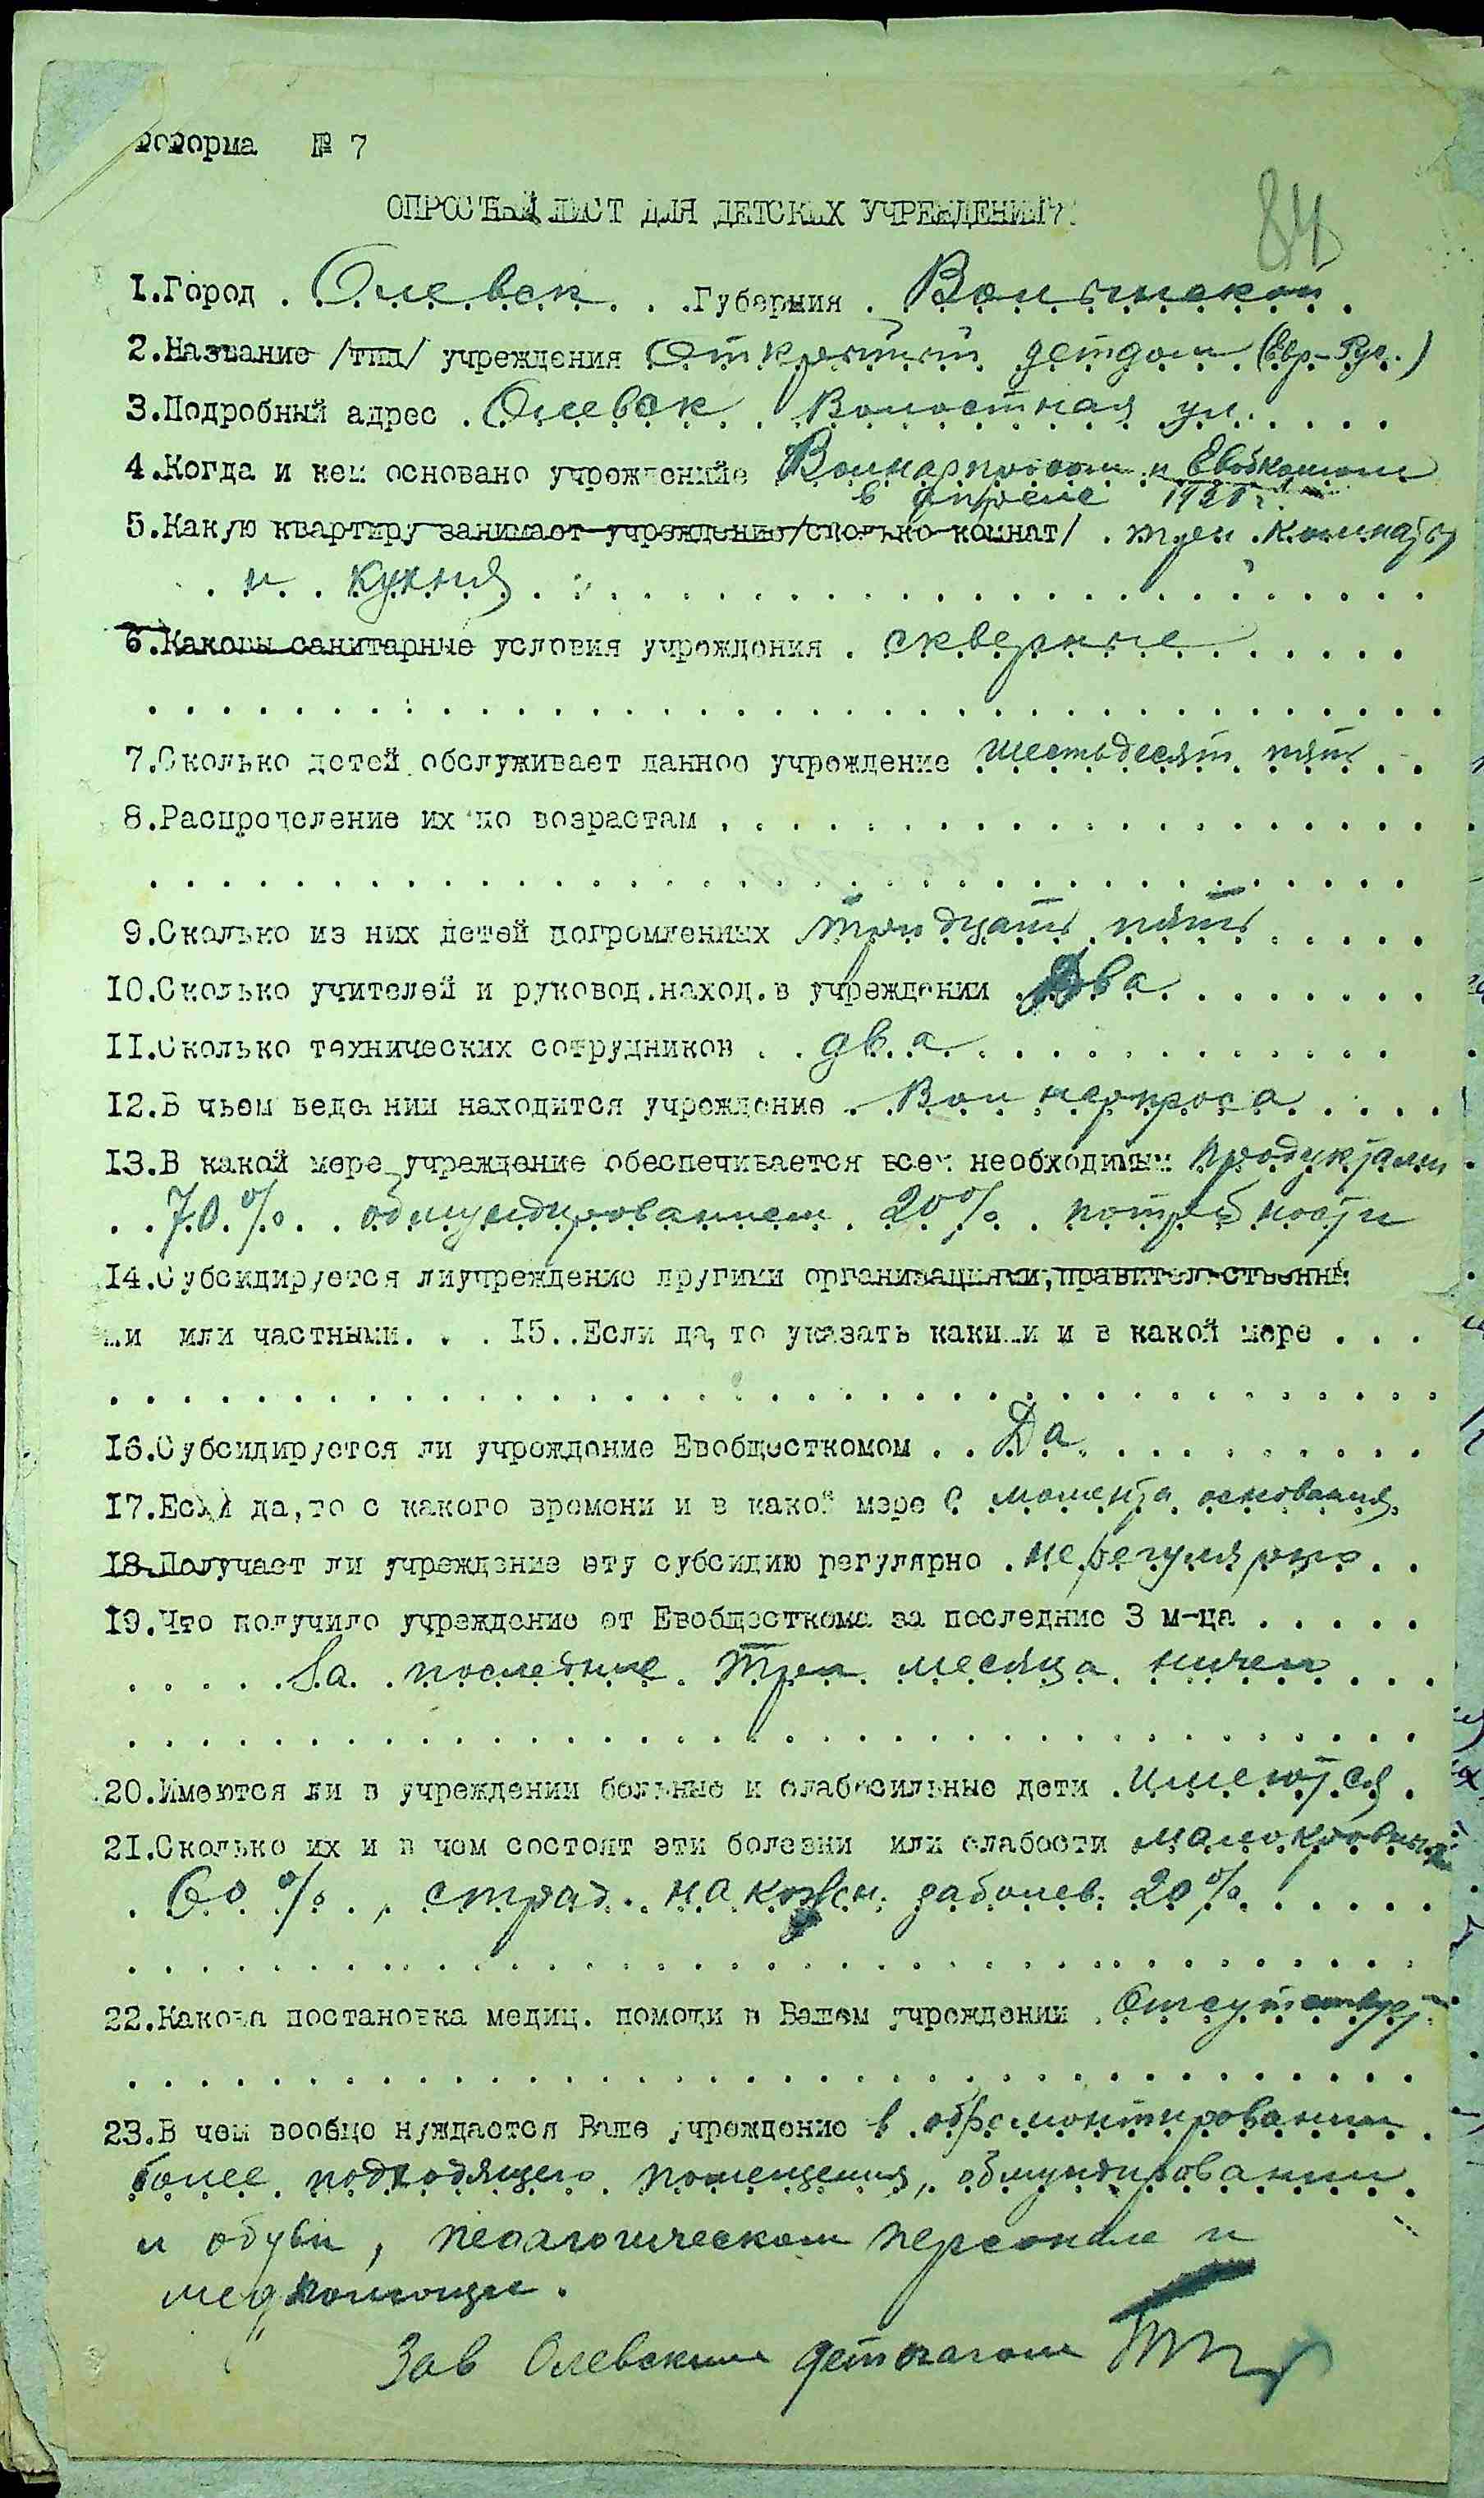 Форма № 7
84
ОПРОСНЫЙ ЛИСТ ДЛЯ ДЕТСКИХ УЧРЕЖДЕНИЙ
1.Город . Олевск. . .Губерния . Волынской .
2.Название /тип/ учреждения Открытый детдом (Евр-Рус.)
3.Подробный адрес . Олевск . Волостная ул. . . . .
4.Когда и кем основано учреждение Волнаробразом и Евобкомом
в апреле 1921 г.
5.Какую квартиру занимает учреждение/сколько комнат/ . три комнаты
. и . кухня . . . . . . . . . . . . . . . . . . . . . . .
6.Каковы санитарные условия учреждения . скверные . . . . . .
7.Сколько детей обслуживает данное учреждение шестьдесят пять . .
8.Распределение их по возрастам . . . . . . . . . . . . . . . . . . .
9.Сколько из них детей погромленных тридцать пять . . . . .
10.Сколько учителей и руковод.наход.в учреждении Два . . . . . . . .
11.Сколько технических сотрудников . . два . . . . . . . . . . . .
12.В чьем ведении находится учреждение . Волнаробраза . . . .
13.В какой мере учреждение обеспечивается всем необходимым продуктами .
. . 70 % . . обмундированием . 20 % . потребности
14.Субсидируется лиучреждение другими организациями,правительственны
ми или частными. . . 15..Если да, то указать какими и в какой мере . . .
16.Субсидируется ли учреждение Евобщесткомом . . Да . . . . . . . . . .
17.Если да,то с какого времени и в какой мере С момента основания.
18.Получает ли учреждение эту субсидию регулярно . нерегулярно . .
19.Что получило учреждение от Евобщесткома за последние 3 м-ца . . . . .
. . . . . За . последние . три . месяца . ничего . . .
20.Имеются ли в учреждении больные и слабосильные дети . имеются .
21.Сколько их и в чем состоят эти болезни или слабости малокровных
. 60 % . , страд. накожн. заболев. 20 % . . . . . .
22.Какова постановка медиц. помощи в Вашем учреждении . Отсутствует
23.В чем вообще нуждается Ваше учреждение в отремонтировании
более подходящего помещения, обмундировании
и обуви, педагогическом персонале и
медпомощи.
Зав Олевским детдомом